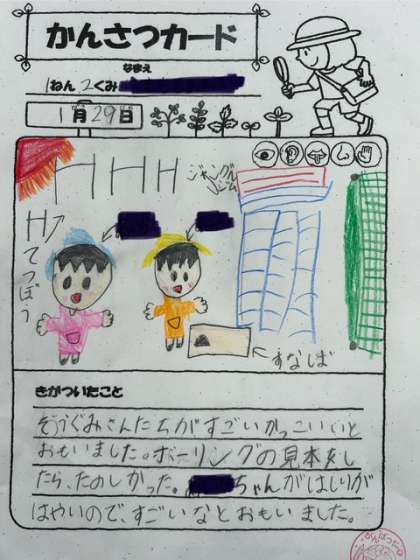 かんさつカード
なまえ
1ねん2くみ
1月29日
ジャングルジム
Hてつぼう
すなしば
きがついたこと
ぞうぐみさんたちがすごいかっこいいと
おもいました。ボーリングの見本をし
たら、たのしかった。ちゃんがはしりが
はやいので、すごいなとおもいました。